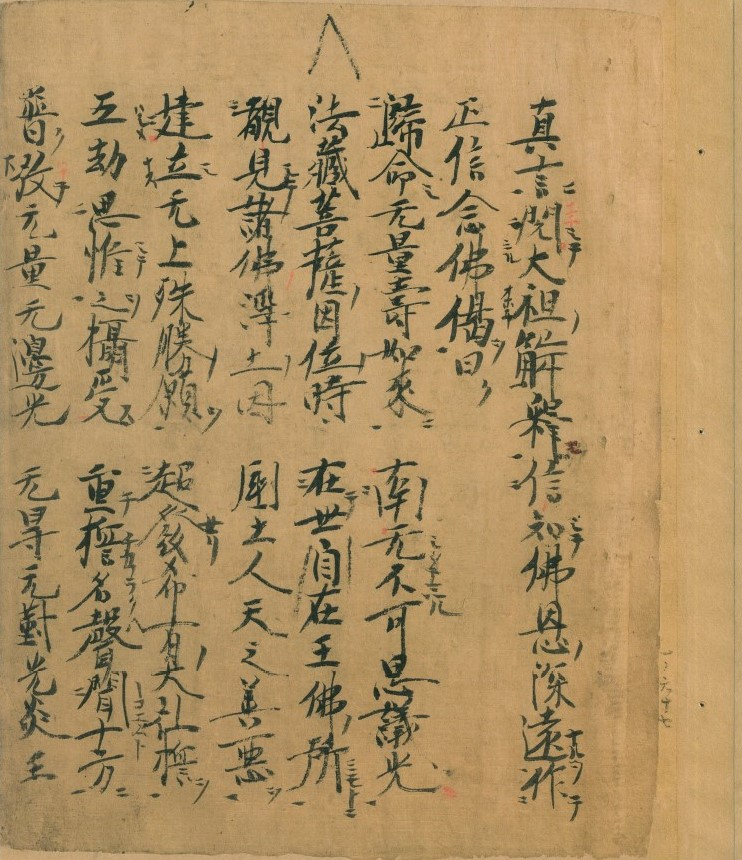 真言閲大祖解釋信知佛恩深遠作
正信念佛偈曰
歸命无量壽如來　南无不可思議光
法藏菩薩因位時　在世自在王佛所
覩見諸佛淨土因　國土人天之善惡
建立无上殊勝願　超發希有大弘誓
五劫思惟之攝受　重誓名聲聞十方
普放无量无邊光　无㝵无對光炎王